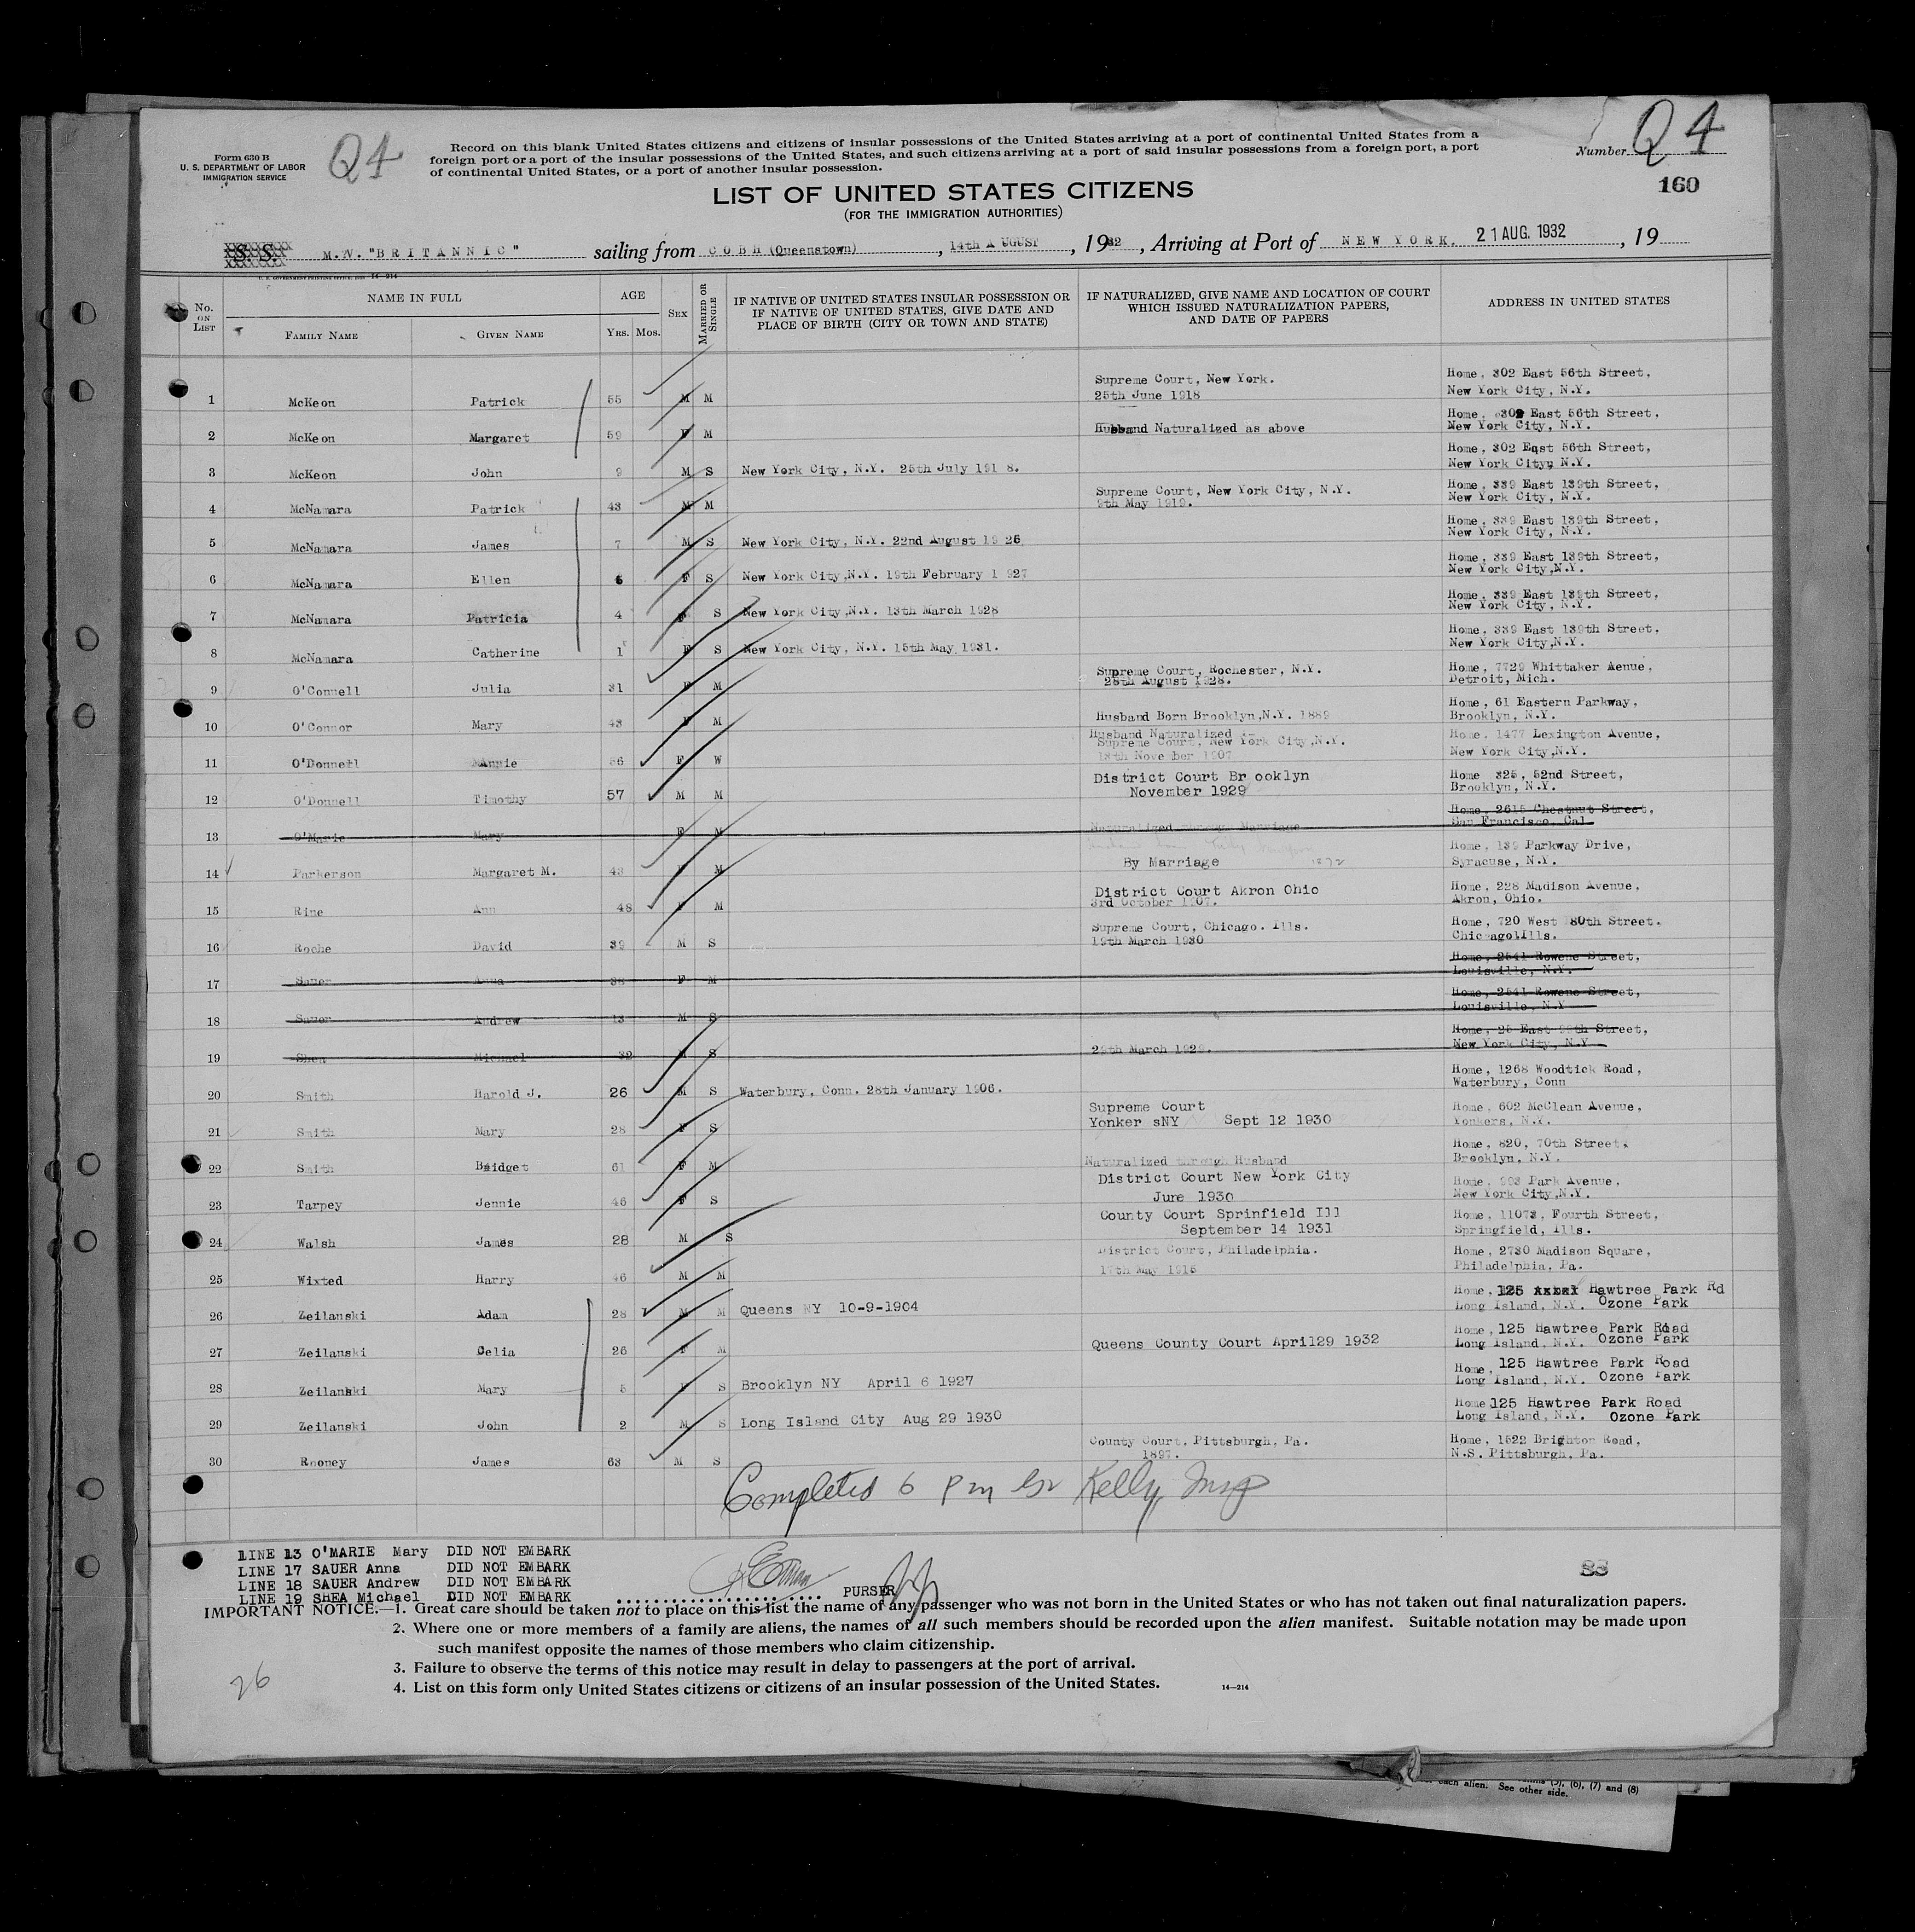 Form 630 B
U. S. DEPARTMENT OF LABOR
IMMIGRATION SERVICE
Q4
Record on this blank United States citizens and citizens of insular possessions of the United States arriving at a port of continental United States from a
foreign port or a port of the insular possessions of the United States, and such citizens arriving at a port of said insular possessions from a foreign port, a port
of continental United States, or a port of another insular possession.
Number Q4
160
LIST OF UNITED STATES CITIZENS
(FOR THE IMMIGRATION AUTHORITIES)
S. S. M.V. "BRITANNIC" sailing from COBH (Queenstown), 14th AUGUST, 1932, Arriving at Port of NEW YORK. 21 AUG. 1932, 19
No. ON LIST NAME IN FULL AGE SEX MARRIED OR SINGLE IF NATIVE OF UNITED STATES INSULAR POSSESSION OR IF NATIVE OF UNITED STATES, GIVE DATE AND PLACE OF BIRTH (CITY OR TOWN AND STATE) IF NATURALIZED, GIVE NAME AND LOCATION OF COURT WHICH ISSUED NATURALIZATION PAPERS, AND DATE OF PAPERS ADDRESS IN UNITED STATES
FAMILY NAME GIVEN NAME YRS. MOS.
1 McKeon Patrick 55 M M Supreme Court, New York. 25th June 1918 Home, 302 East 56th Street, New York City, N.Y.
2 McKeon Margaret 59 F M Husband Naturalized as above Home, 302 East 56th Street, New York City, N.Y.
3 McKeon John 9 M S New York City, N.Y. 25th July 191 8. Home, 302 East 56th Street, New York City, N.Y.
4 McNamara Patrick 43 M M Supreme Court, New York City, N.Y. 9th May 1919. Home, 339 East 139th Street, New York City, N.Y.
5 McNamara James 7 M S New York City, N.Y. 22nd August 19 26 Home, 339 East 139th Street, New York City, N.Y.
6 McNamara Ellen F S New York City,N.Y. 19th February 1 927 Home, 339 East 139th Street, New York City,N.Y.
7 McNamara Patricia 4 F S New York City,N.Y. 13th March 1928 Home, 339 East 139th Street, New York City, N.Y.
8 McNamara Catherine 1 F S New York City, N.Y. 15th May 1931. Home, 339 East 139th Street, New York City,N.Y.
9 O'Connell Julia 31 F M Supreme Court, Rochester, N.Y. 28th August 1928. Home, 7729 Whittaker Aenue, Detroit, Mich.
10 O'Connor Mary 43 F M Husband Born Brooklyn,N.Y. 1889 Home, 61 Eastern Parkway, Brooklyn, N.Y.
11 O'Donnell Annie 56 F W Husband Naturalized Supreme Court, New York City,N.Y. 18th November 1907 Home, 1477 Lexington Avenue, New York City,N.Y.
12 O'Donnell Timothy 57 M M District Court Br ooklyn November 1929 Home 325, 52nd Street, Brooklyn, N.Y.
13 O'Marie Mary F M Naturalized through Marriage Home, 2615 Chestnut Street, San Francisco, Cal
14 Parkerson Margaret M. 43 F M By Marriage Home, 139 Parkway Drive, Syracuse, N.Y.
15 Rine Ann 48 F M District Court Akron Ohio 3rd October 1907. Home, 228 Madison Avenue, Akron, Ohio.
16 Roche David 39 M S Supreme Court, Chicago. Ills. 19th March 1930 Home, 720 West 80th Street. Chicago Ills.
17 Sauer Anna 38 F M Home, 2541 Rowene Street, Louisville, N.Y.
18 Sauer Andrew 13 M S Home, 2541 Rowene Street, Louisville, N.Y
19 Shea Michael 32 M S 29th March 1929. Home, 25 East 99th Street, New York City, N.Y
20 Smith Harold J. 26 M S Waterbury, Conn. 28th January 1906. Home, 1268 Woodtick Road, Waterbury, Conn
21 Smith Mary 28 F S Supreme Court Yonker sNY Sept 12 1930 Home, 602 McClean Avenue, Yonkers, N.Y.
22 Smith Bridget 61 F M Naturalized through Husband Home, 820, 70th Street, Brooklyn, N.Y.
23 Tarpey Jennie 46 F S District Court New York City Jure 1930 Home, 903 Park Avenue, New York City,N.Y.
24 Walsh James 28 M S County Court Sprinfield Ill September 14 1931 Home, Fourth Street, Springfield, Ills.
25 Wixted Harry 46 M M District Court, Philadelphia. 17th May 1915 Home, 2730 Madison Square, Philadelphia, Pa.
26 Zeilanski Adam 28 M M Queens NY 10-9-1904 Home, 125 Hawtree Park Rd Long Island, N.Y. Ozone Park
27 Zeilanski Celia 26 F M Queens County Court April29 1932 Home, 125 Hawtree Park Road Long Island, N.Y. Ozone Park
28 Zeilanski Mary 5 F S Brooklyn NY April 6 1927 Home, 125 Hawtree Park Road Long Island, N.Y. Ozone Park
29 Zeilanski John 2 M S Long Island City Aug 29 1930 Home 125 Hawtree Park Road Long Island, N.Y. Ozone Park
30 Rooney James 63 M S County Court, Pittsburgh, Pa. 1897. Home, 1522 Brighton Road, N.S. Pittsburgh, Pa.
Completed 6 pm Kelly, Insp
LINE 13 O'MARIE Mary DID NOT EMBARK
LINE 17 SAUER Anna DID NOT EMBARK
LINE 18 SAUER Andrew DID NOT EMBARK
LINE 19 SHEA Michael DID NOT EMBARK
PURSER
IMPORTANT NOTICE.—1. Great care should be taken not to place on this list the name of any passenger who was not born in the United States or who has not taken out final naturalization papers.
2. Where one or more members of a family are aliens, the names of all such members should be recorded upon the alien manifest. Suitable notation may be made upon
such manifest opposite the names of those members who claim citizenship.
3. Failure to observe the terms of this notice may result in delay to passengers at the port of arrival.
4. List on this form only United States citizens or citizens of an insular possession of the United States.
14—214
26
each alien. See other side.
(6), (7) and (8)